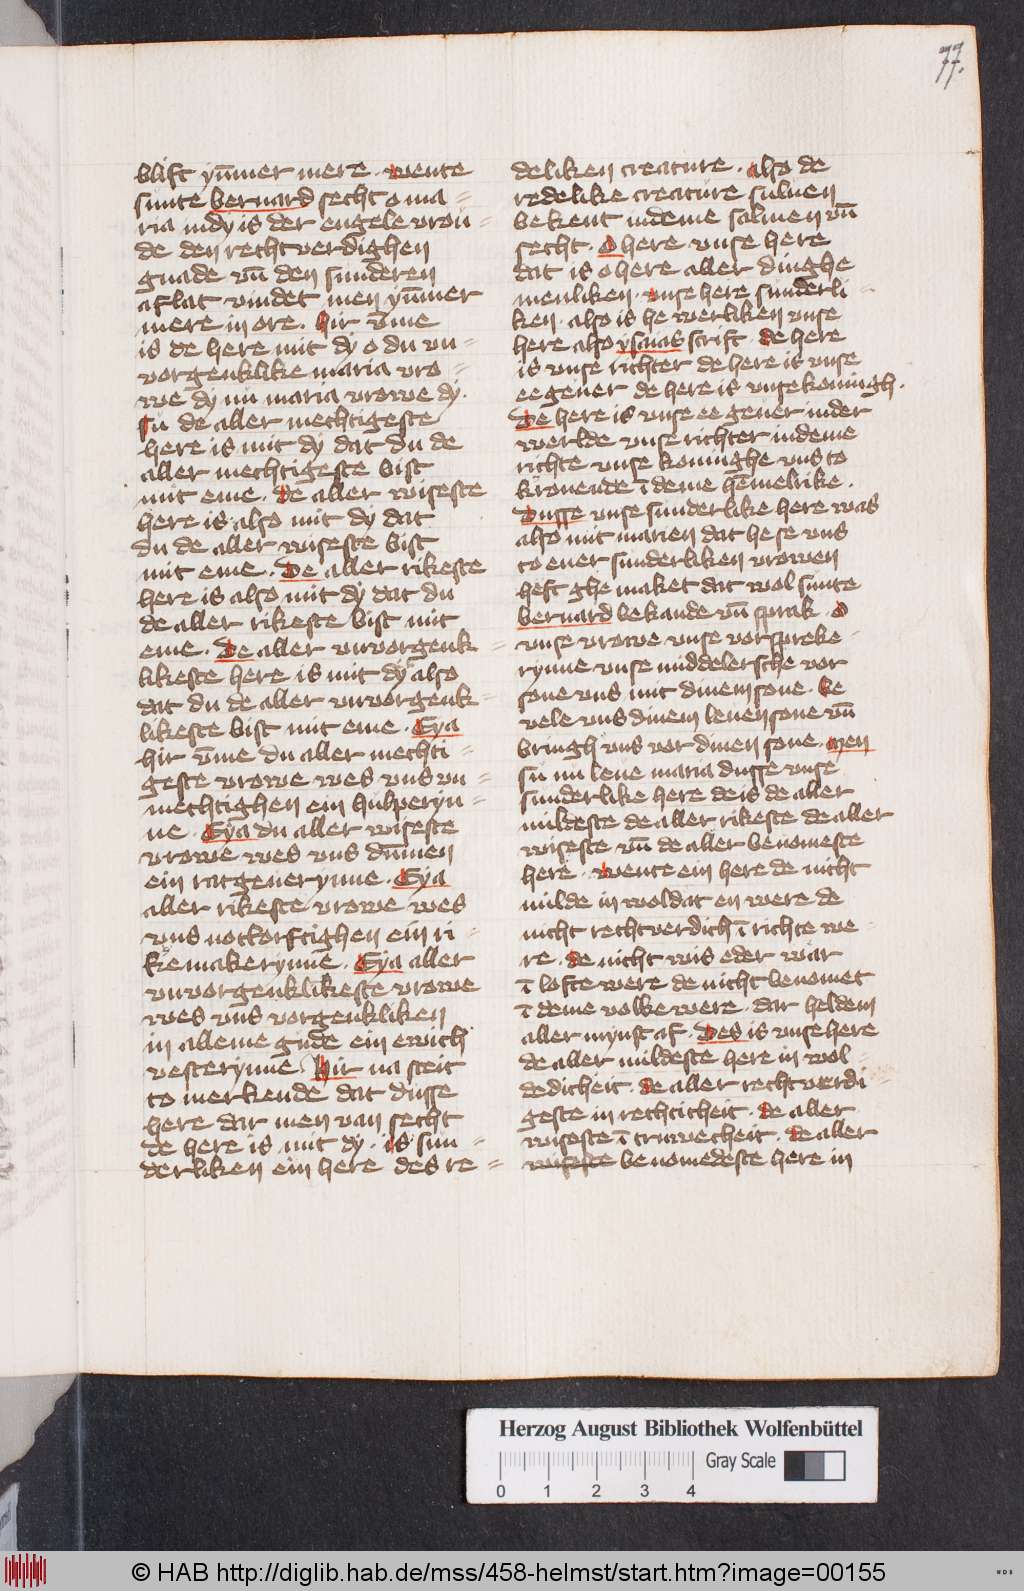 77.
blift ym̄mer mere . wente
sunte bernard secht o ma=
ria in dy is der engele vrou=
de den rechtverdighen
gnade vn̄ den sunderen
aflat vindet men ym̄mer
mere in ore . hir v̄me
is de here mit dy o du vn=
vorgenklike maria vro=
we dy nu maria vrowe dy .
su de aller mechtigeste
here is mit dy dat du de
aller mechtigeste bist
mit eme . de aller wiseste
here is also mit dy dat
du de aller wiseste bist
mit eme . De aller rikeste
here is also mit dy dat du
de aller rikeste bist mit
eme . De aller vnvorgenk=
likeste here is mit dy also
dat du de aller vnvorgenk=
likeste bist mit eme . Eya
hir v̄me du aller mechti=
geste vrowe wes vns vn=
mechtighen ein hulperyn=
ne . Eya du aller wiseste
vrowe wes vns dum̄en
ein ratgeuerynne . Eya
aller rikeste vrowe wes
vns nottorftighen ein ri=
kemakerynne . Eya aller
vnvorgenklikeste vrowe
wes vns vorgenkliken
in alleme gude ein ewich
vesterynne . Hir na steit
to merkende dat dusse
here dar men van secht
de here is mit dy . is sun=
derliken ein here des re=
deliken creature . also de
redelike creature suluen
bekent in deme salmen vn̄
secht . O here vnse here
dat is o here aller dinghe
menliken . vnse here sunderli=
ken . also is he werliken vnse
here also ysaias scrift . de here
is vnse richter de here is vnse
ee geuer de here is vnse koningh .
De here is vnse ee geuer in der
werlde vnse richter in deme
richte vnse koninghe vns to
kronende ī deme hem̄elrike .
Dusse vnse sunderlike here was
also mit marien dat he se vns
to ener sunderliken vrowen
heft ghe maket dat wol sunte
bernard bekande vn̄ sprak . O
vnse vrowe vnse vorspreke=
rynne vnse middelersche vor
sone vns mit dinem sone . be
vele vns dinem leuen sone vn̄
bringh vns vor dinen sone . Men
su nu leue maria dusse vnse
sunderlike here de is de aller
mildeste de aller rikeste de aller
wiseste vn̄ de aller benomeste
here . wente ein here de nicht
milde in woldat en were de
nicht rechtverdich ī richte we=
re . de nicht wis eder war
ī lofte were de nicht benomet
ī deme volke were . dar helde m
aller mynst af . Des is vnse here
de aller mildeste here in wol=
dedicheit . de aller rechtverdi=
geste in rechticheit . de aller
wiseste ī truwecheit . de aller
wiseste benomedeste here in
Herzog August Bibliothek Wolfenbüttel
Gray Scale
0 1 2 3 4
© HAB http://diglib.hab.de/mss/458-helmst/start.htm?image=00155